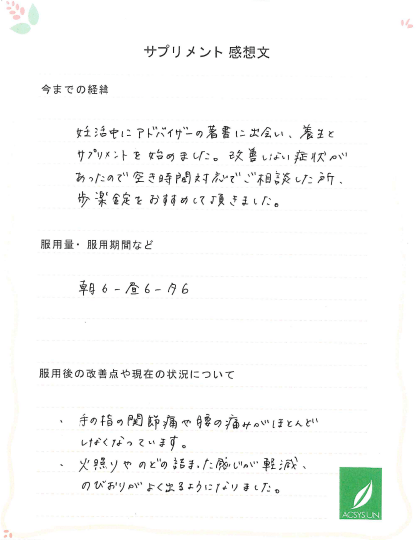 サプリメント 感想文
今までの経緯
妊活中にアドバイザーの著書に出会い、養生と
サプリメントを始めました。改善しない症状が
あったので空き時間対応でご相談した所、
歩楽錠をおすすめして頂きました。
服用量・服用期間など
朝6-昼6-夕6
服用後の改善点や現在の状況について
・手の指の関節痛や腰の痛みがほとんど
しなくなっています。
・火照りやのどの詰まった感じが軽減、
のびおりがよく出るようになりました。
ACSYSLIN